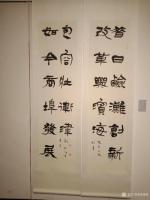 昔日鹼灘創新
改革興濱海
如今商埠發展
包容壯衛津